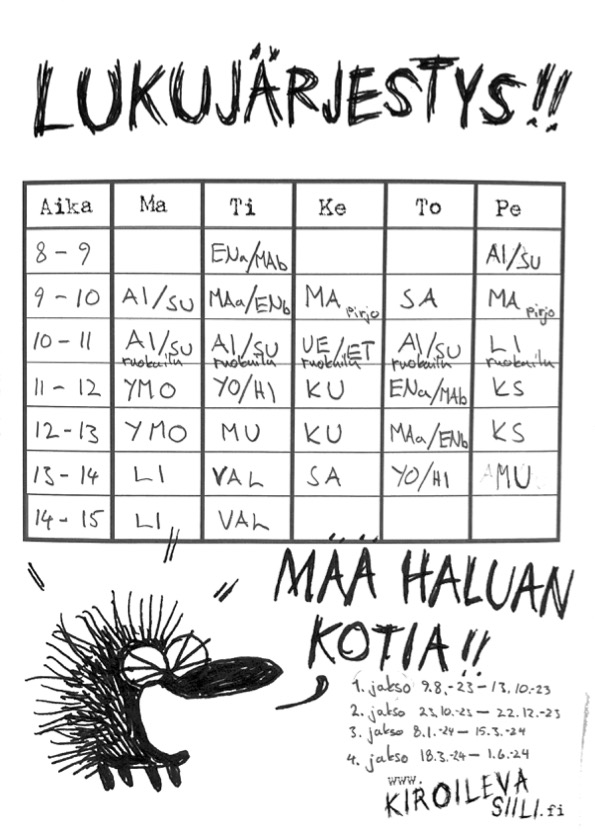 LUKUJÄRJESTYS!!
Aika Ma Ti Ke To Pe
8-9 ENa/MAb AI/SU
9-10 AI/SU MAa/ENb MA pirjo SA MA pirjo
10-11 AI/SU AI/SU UE/ET AI/SU LI
ruokailu ruokailu ruokailu ruokailu ruokailu
11-12 YMO YO/HI KU ENa/MAb KS
12-13 YMO MU KU MAa/ENb KS
13-14 LI VAL SA YO/HI MU
14-15 LI VAL
MÄÄ HALUAN
KOTIA!!
1. jakso 9.8.-23 - 13.10.-23
2. jakso 23.10.-23 - 22.12.-23
3. jakso 8.1.-24 - 15.3.-24
4. jakso 18.3.-24 - 1.6.-24
www.
KIROILEVA
SIILI.fi